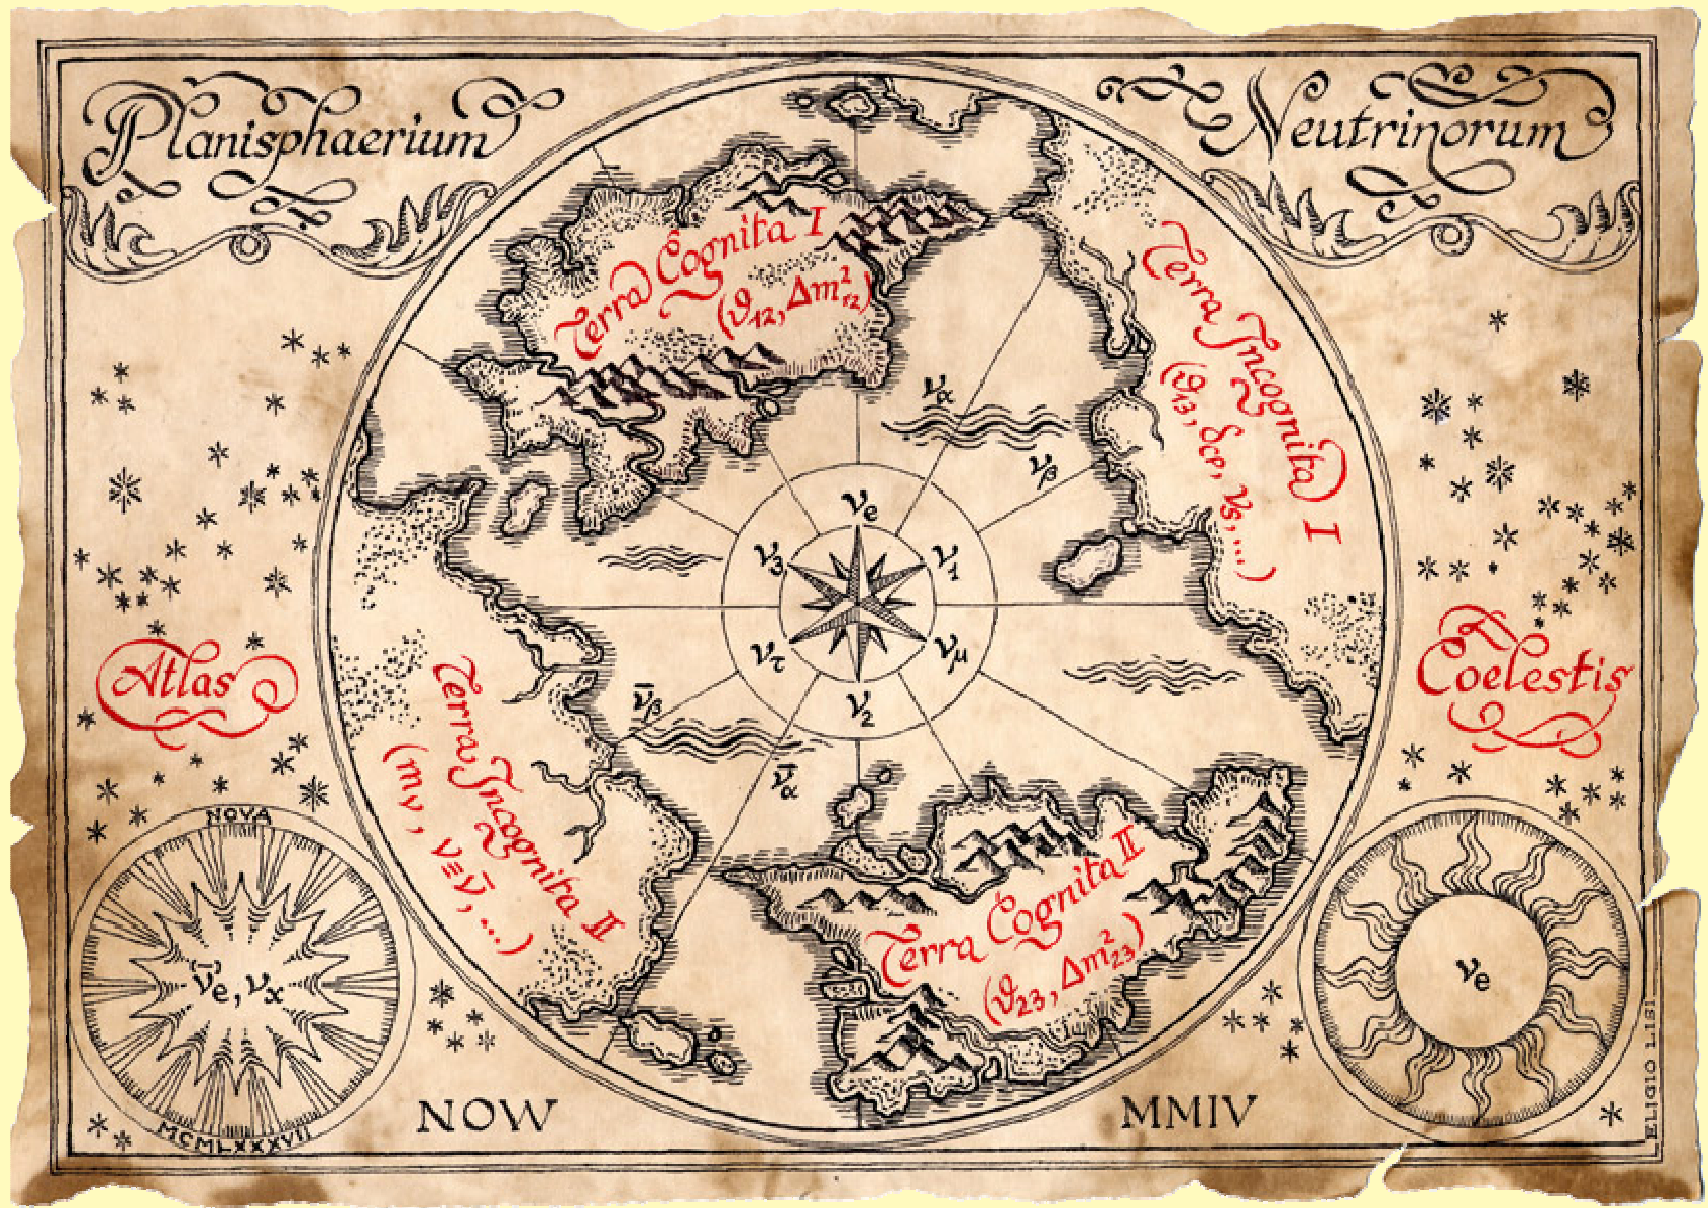 Planisphaerium
Neutrinorum
Terra Cognita I
(ϑ₁₂, Δm²₁₂)
Terra Incognita I
(ϑ₁₃, δCP, νs, ...)
να
νβ
νe
ν3
ν1
ντ
νμ
ν2
Atlas
Coelestis
ν̄β
ν̄α
Terra Incognita II
(mν, ν≡ν̄, ...)
Terra Cognita II
(ϑ₂₃, Δm²₂₃)
NOVA
(ν̄)e, νx
MCMLXXXVII
νe
NOW
MMIV
ELIGIO LISI